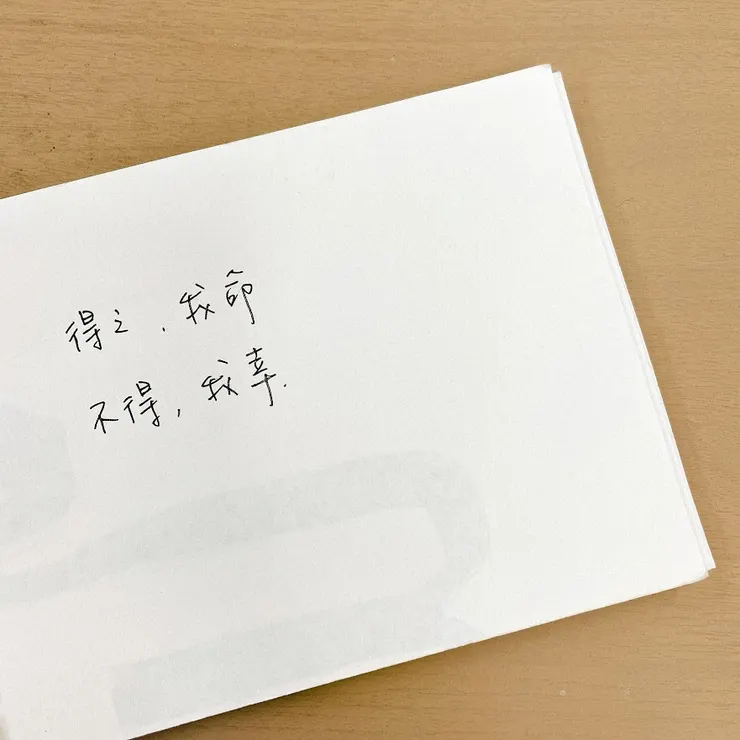 得之,我命
不得,我幸.